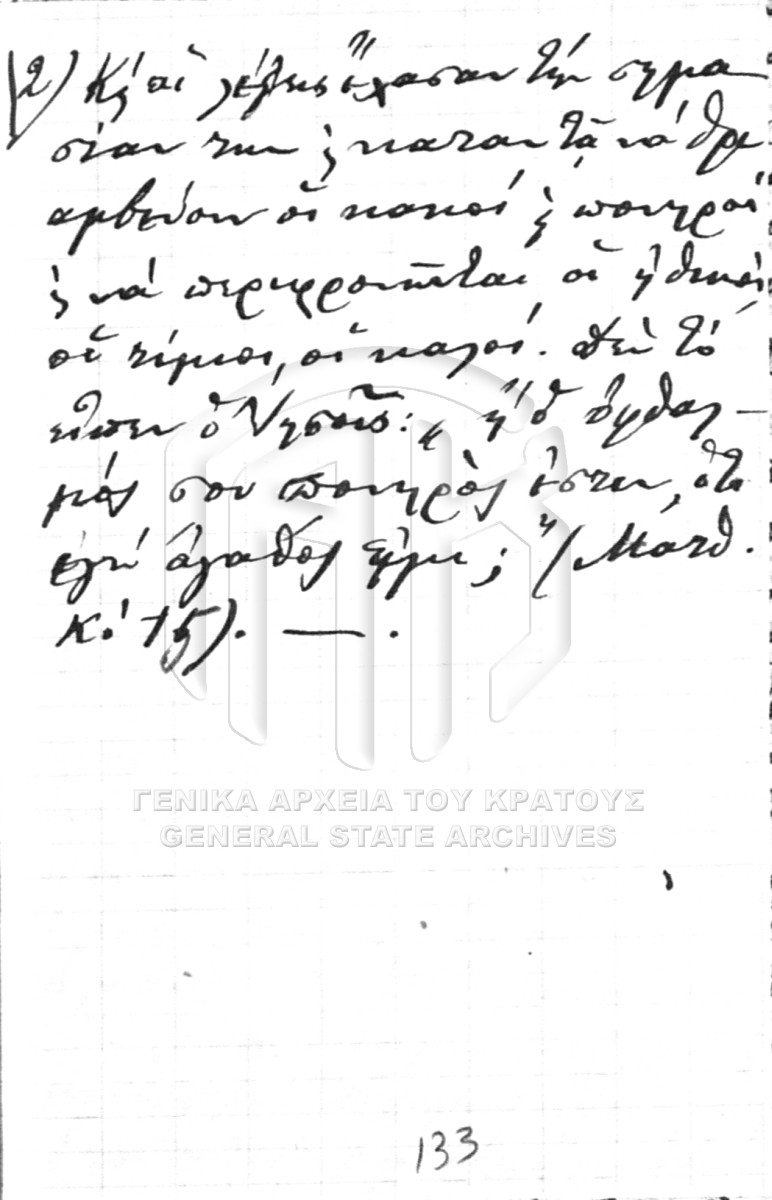 2) Κ' αἱ λέξεις ἔχασαν τήν σημα-
σίαν των κ καταντᾶ νά θρι-
αμβεύουν οἱ κακοί κ πονηροί
κ νά περιφρονῆνται οἱ ἠθικοί,
οἱ τίμιοι, οἱ καλοί. τό
εἶπεν ὁ Ἰησοῦς: „ ἤ ὁ ὀφθαλ-
μός σου πονηρὸς ἐστιν, ὅτι
ἐγώ ἀγαθός εἰμι; " (Ματθ.
Κ. 15). — .
ΓΕΝΙΚΑ ΑΡΧΕΙΑ ΤΟΥ ΚΡΑΤΟΥΣ
GENERAL STATE ARCHIVES
133